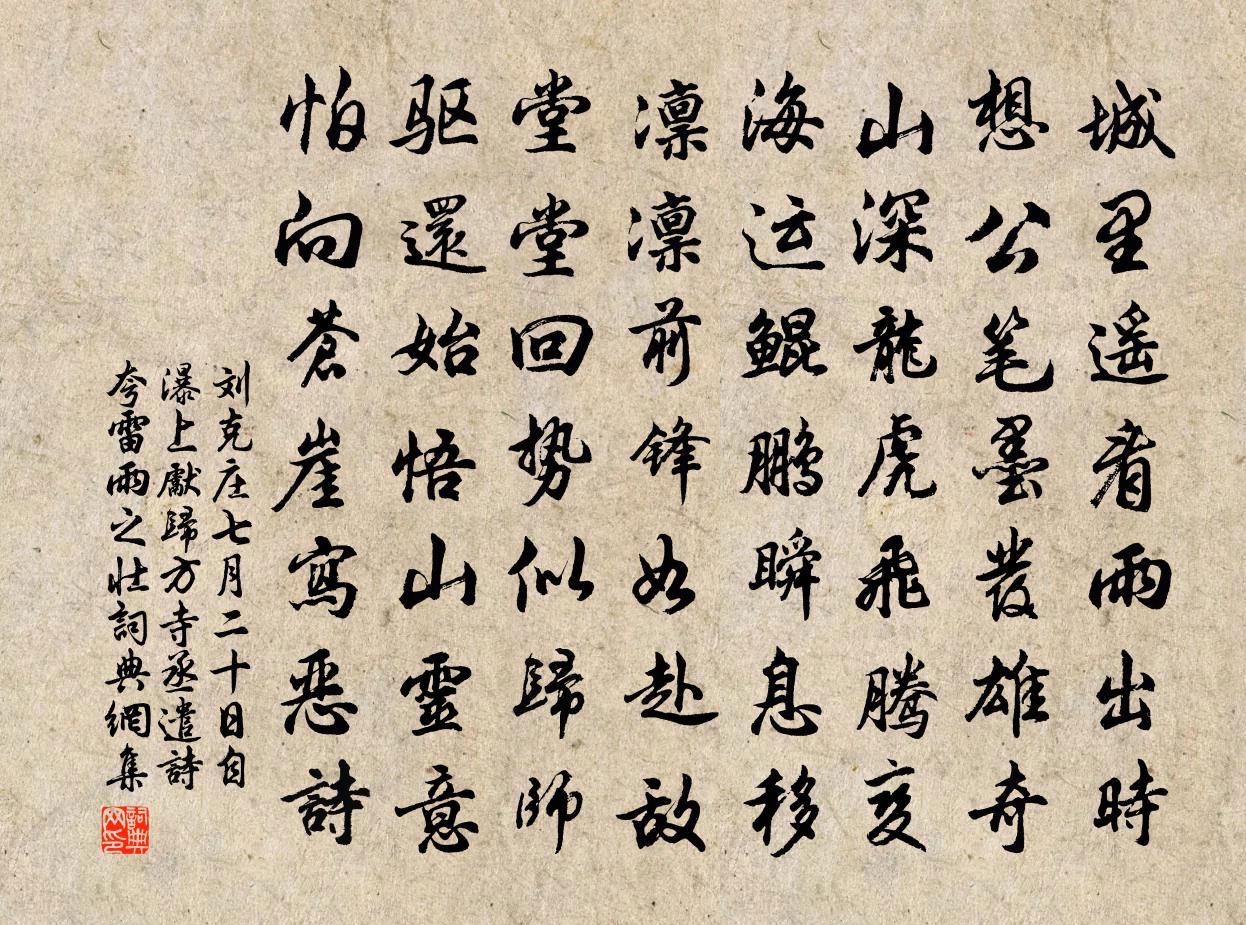 城里遥看雨出時
想公笔墨發雄奇
山深龍虎飛腾变
海运鲲鹏瞬息移
凛凛前锋如赴敌
堂堂回势似歸師
驱還始悟山靈意
怕向蒼崖寫恶詩
刘克庄七月二十日自
瀑上獻歸方寺丞遣詩
夸雷雨之壮詞典網集
詞典
网印